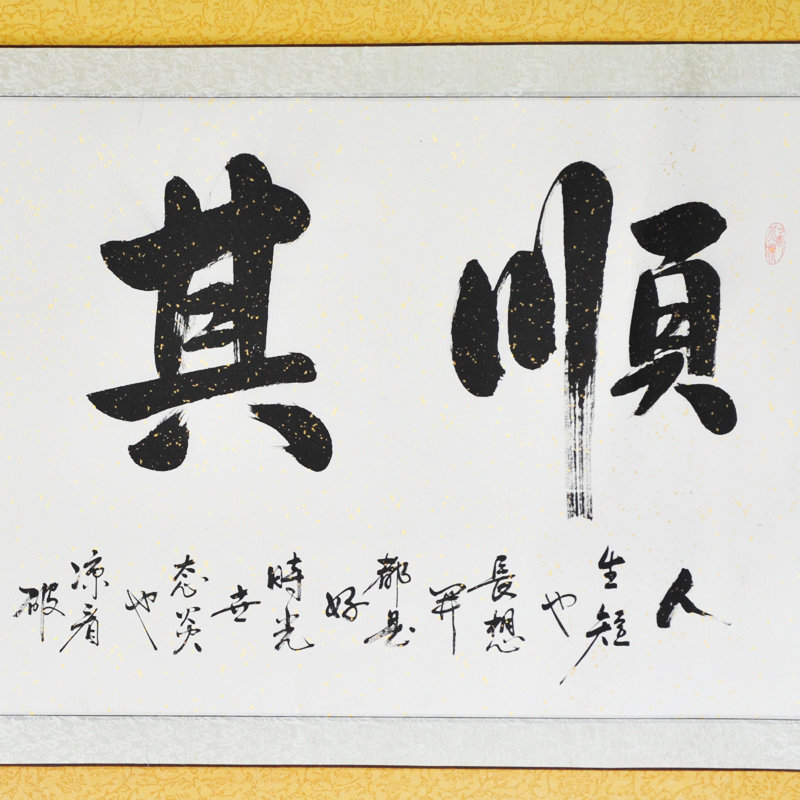 順其
人
生短
也
長想
開
都是
好
時光
世
态炎
也
凉看
破